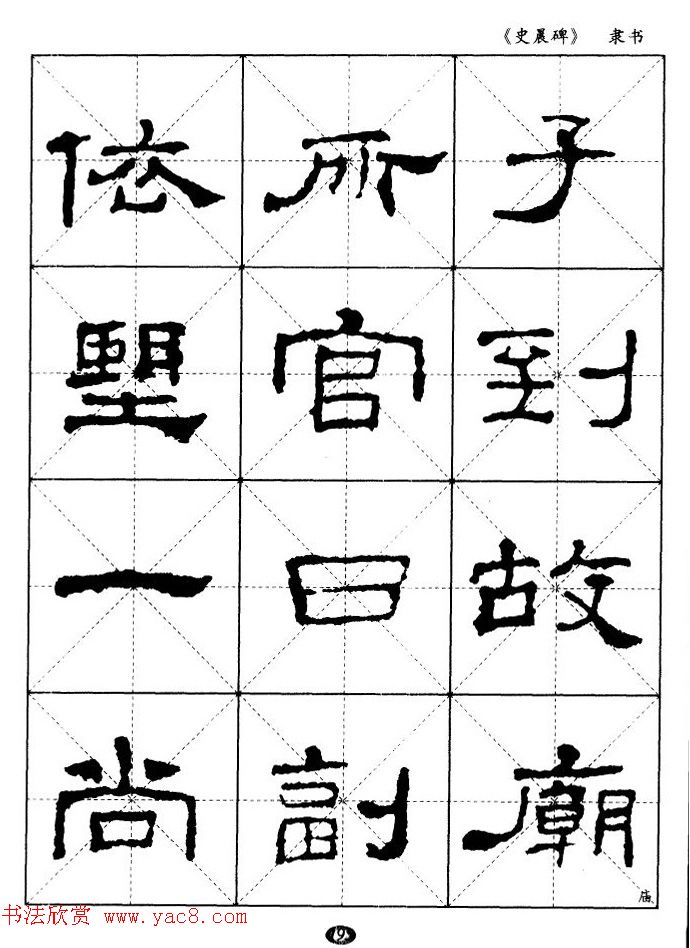 《史晨碑》 隶书
子到故廟
所官日副
依望一尚
庙
书法欣赏 www.yac8.com
19